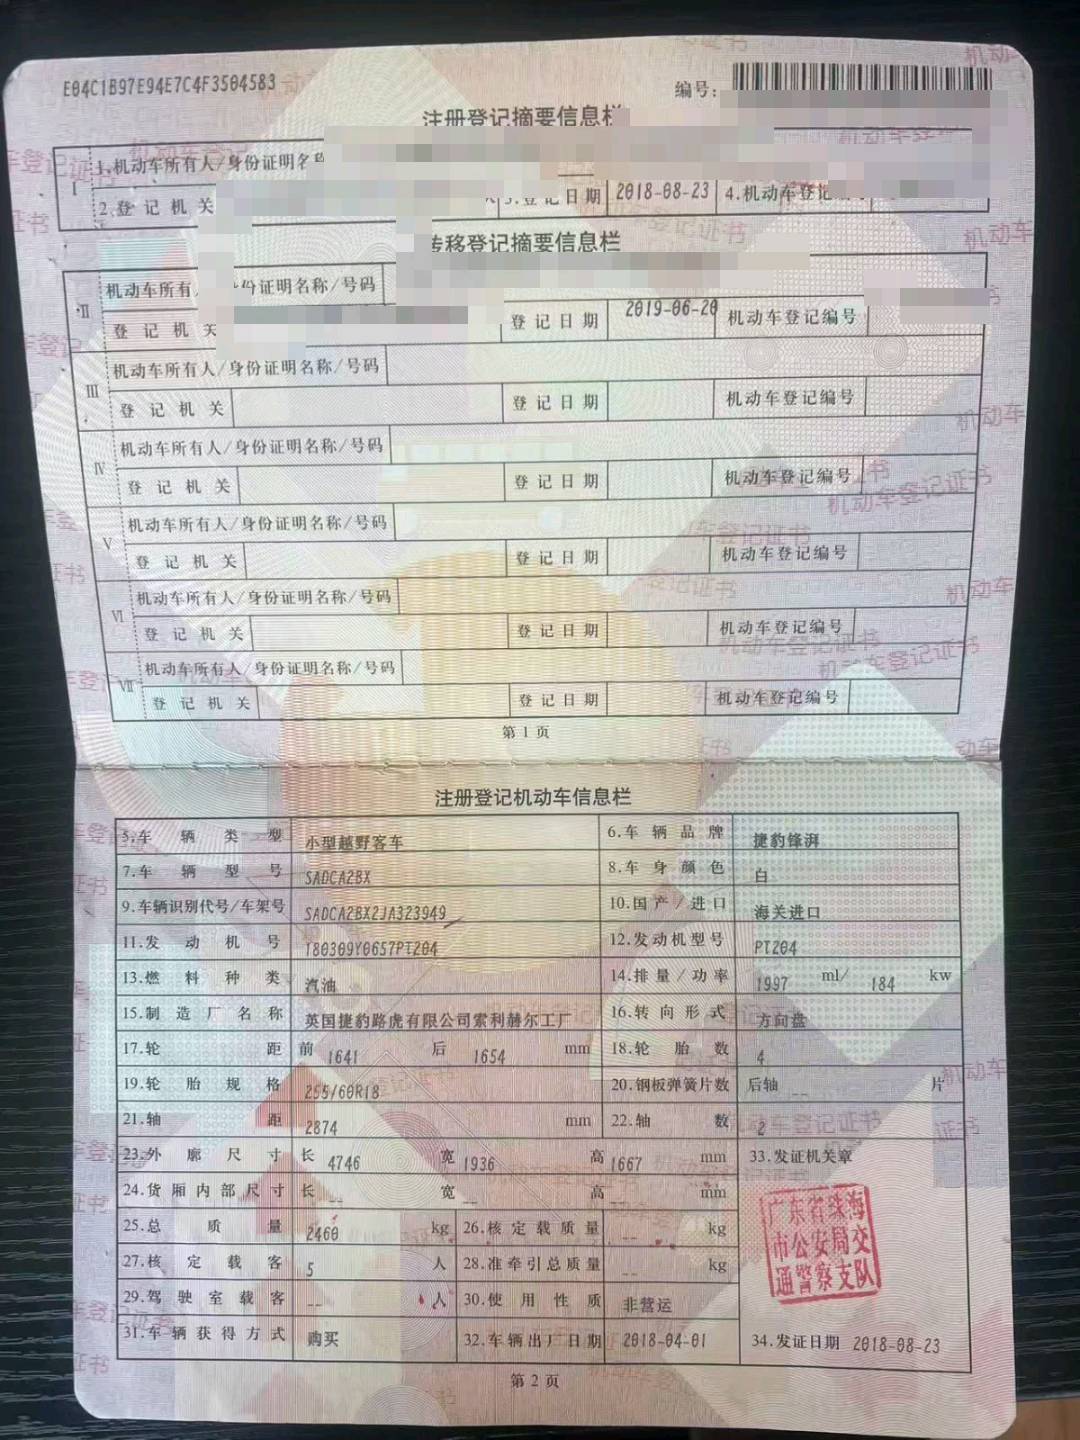 E04C1B97E94E7C4F3504583
编号:
注册登记摘要信息栏
Ⅰ 1.机动车所有人/身份证明名
2.登记机关 3.登记日期 2018-08-23 4.机动车登记
转移登记摘要信息栏
Ⅱ 机动车所有 份证明名称/号码
登记机关 登记日期 2019-06-20 机动车登记编号
Ⅲ 机动车所有人/身份证明名称/号码
登记机关 登记日期 机动车登记编号
Ⅳ 机动车所有人/身份证明名称/号码
登记机关 登记日期 机动车登记编号
Ⅴ 机动车所有人/身份证明名称/号码
登记机关 登记日期 机动车登记编号
Ⅵ 机动车所有人/身份证明名称/号码
登记机关 登记日期 机动车登记编号
Ⅶ 机动车所有人/身份证明名称/号码
登记机关 登记日期 机动车登记编号
第1页
注册登记机动车信息栏
5.车辆类型 小型越野客车 6.车辆品牌 捷豹锋湃
7.车辆型号 SADCA2BX 8.车身颜色 白
9.车辆识别代号/车架号 SADCA2BX2JA323949 10.国产/进口 海关进口
11.发动机号 180309Y0657PT204 12.发动机型号 PT204
13.燃料种类 汽油 14.排量/功率 1997 ml/ 184 kw
15.制造厂名称 英国捷豹路虎有限公司索利赫尔工厂 16.转向形式 方向盘
17.轮距 前 1641 后 1654 mm 18.轮胎数 4
19.轮胎规格 255/60R18 20.钢板弹簧片数 后轴 -- 片
21.轴距 2874 mm 22.轴数 2
23.外廓尺寸 长 4746 宽 1936 高 1667 mm 33.发证机关章
24.货厢内部尺寸 长 -- 宽 -- 高 -- mm
25.总质量 2460 kg 26.核定载质量 -- kg
27.核定载客 5 人 28.准牵引总质量 -- kg
29.驾驶室载客 -- 人 30.使用性质 非营运
31.车辆获得方式 购买 32.车辆出厂日期 2018-04-01 34.发证日期 2018-08-23
广东省珠海
市公安局交
通警察支队
第2页